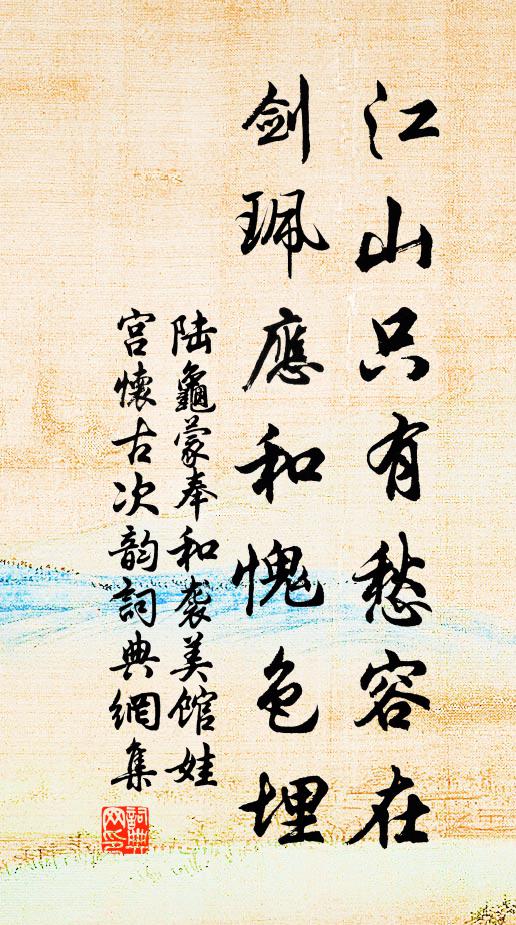 江山只有愁容在
劍珮應和愧色埋
陆龜蒙奉和袭美馆娃
宫懷古次韵詞典網集
詞典
网印